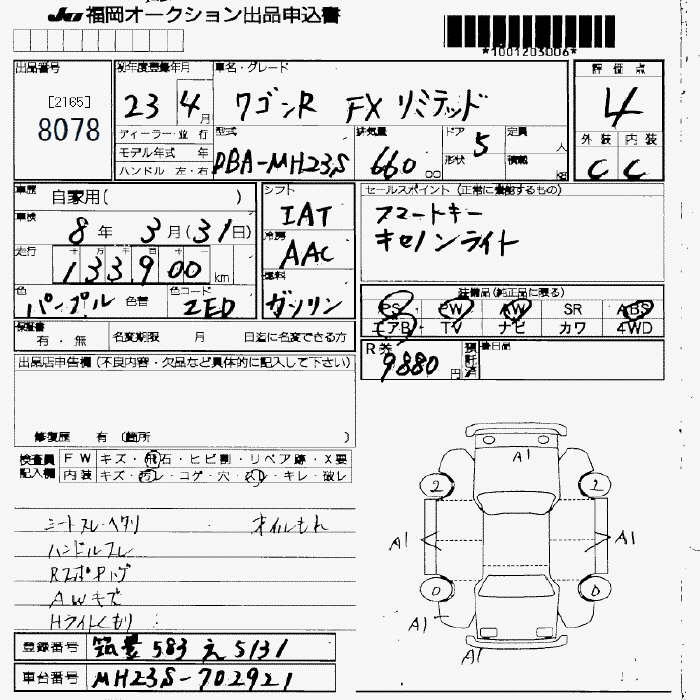 JU福岡オークション出品申込書
*1001203006*
出品番号
[2165]
8078
初年度登録年月
23 4月
車名・グレード
ワゴンR FXリミテッド
評価点
4
外装 内装
C C
ディーラー・並行
モデル年式 年
ハンドル 左・右
型式
DBA-MH23S
排気量
660 cc
ドア
5
形状
定員
人
積載
kg
車歴
自家用( )
車検
8年 3月(31日)
走行
十 万 千 百 十 一
133900 km
色
パープル 色替
色コード
ZED
シフト
IAT
冷房
AAC
燃料
ガソリン
セールスポイント(正常に機能するもの)
スマートキー
キセノンライト
装備品(純正品に限る)
PS PW AW SR ABS
エアB TV ナビ カワ 4WD
保証書
有・無 名変期限 月 日迄に名変できる方
R券
9880円
預託済
後日品
出品店申告欄(不良内容・欠品など具体的に記入して下さい)
修復歴 有(箇所 )
検査員記入欄
FW キズ・飛石・ヒビ割・リペア跡・X要
内装 キズ・汚レ・コゲ・穴・スレ・キレ・破レ
シートスレ・ヘタリ オイルもれ
ハンドルスレ
AWキズ
Hライトくもり
A1
2 2
A1 A1
0 0
A1
A1
登録番号 筑豊 583 え 5131
車台番号 MH23S-702921